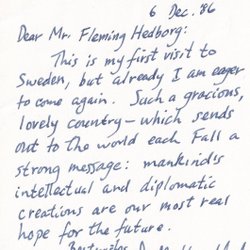 6 Dec. '86
Dear Mr. Fleming Hedborg:
This is my first visit to
Sweden, but already I am eager
to come again. Such a gracious,
lovely country – which sends
out to the world each Fall a
strong message: mankind's
intellectual and diplomatic
creations are our most real
hope for the future.